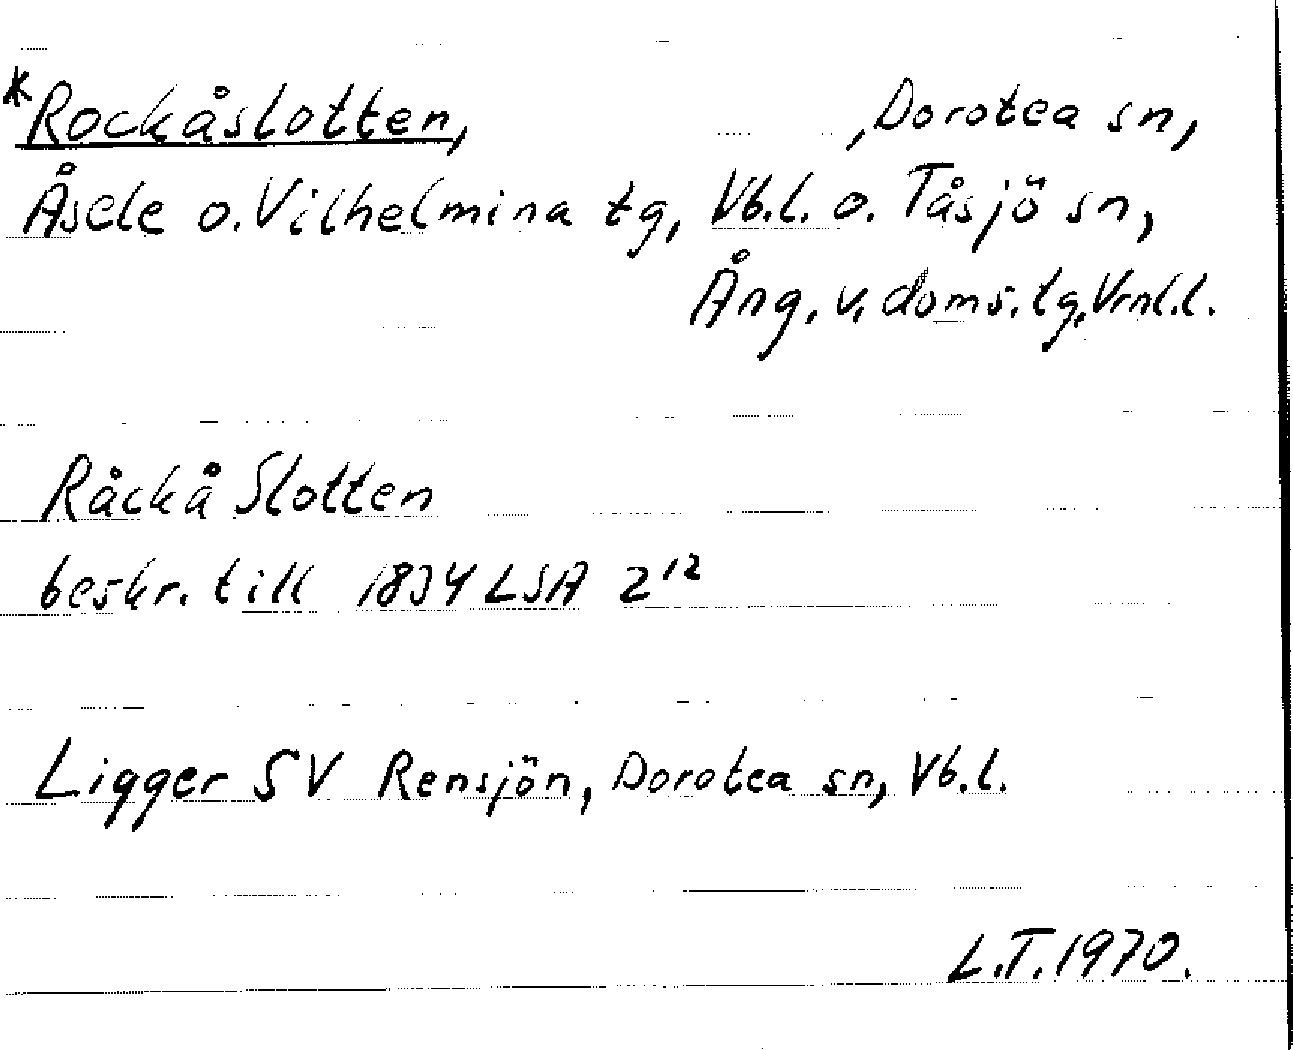 *Rockåslotten, , Dorotea sn,
Åsele o. Vilhelmina tg, Vb.l. o. Tåsjö sn,
Ång. v. doms. tg, Vrnl.l.
Råckå Slotten
beskr. till 1834 LSA 2¹²
Ligger SV Rensjön, Dorotea sn, Vb.l.
L.T. 1970.